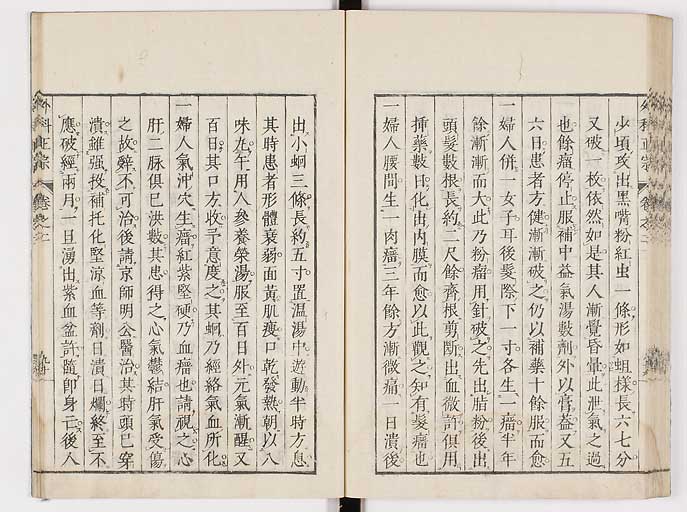 少頃攻出黑嘴粉紅虫一條形如蛆樣長六七分
又破一枚依然如是其人漸覺昏暈此泄氣之過
也餘瘤停止服補中益氣湯數劑外以膏益又五
六日患者方健漸漸破之仍以補藥十餘服而愈
一婦人併一女子耳後髮際下一寸各生一瘤半年
餘漸漸而大此乃粉瘤用針破之先出脂粉後出
頭髮數根長約二尺餘齊根剪斷出血微許俱用
挿藥數日化出內膜而愈以此觀之知有髮瘤也
一婦人腰間生一肉瘤三年餘方漸微痛一日潰後
出小蛔三條長約五寸置溫湯中遊動半時方息
其時患者形體衰弱面黃肌瘦口乾發熱朝以八
味丸午用人參養榮湯服至百日外元氣漸醒又
百日其口方收予意度之其蛔乃經絡氣血所化
一婦人氣冲穴生瘤紅紫堅硬乃血瘤也請視之心
肝二脉俱已洪數其患得之心氣鬱結肝氣受傷
之故辭不可治後請京師明公醫治其時頭已穿
潰雖强投補托化堅凉血等劑日潰日爛終至不
應破經兩月一旦湧出紫血盆許隨卽身亡後人
外科正宗